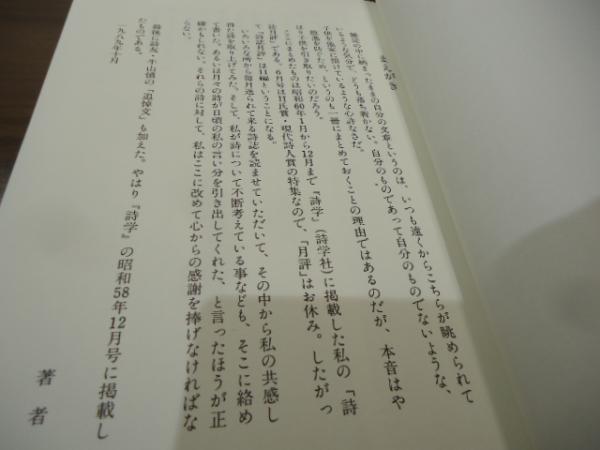 まえがき
雑誌の中に納まったままの自分の文章というのは、いつも遠くからこちらが眺められて
いるような気分で、どうも落ち着かない。自分のものであって自分のものでないような、
子供を他家に預けているような心許なさだ。
散逸を防ぐため、というのも一冊にまとめておくことの理由ではあるのだが、本音はや
はり子供を引き取りたいのだろう。
ここにまとめたものは昭和60年1月から12月まで『詩学』(詩学社)に掲載した私の「詩
誌月評」である。6月号はH氏賞・現代詩人賞の特集なので、「月評」はお休み。したがっ
て「詩誌月評」は11回ということになる。
いろいろな所から毎月送られて来る詩誌を読ませていただいて、その中から私の共感し
得た詩を取り上げてみた。そして、私が詩について不断考えている事なども、そこに絡め
て書いた。あるいは月々の詩が日頃の私の言い分を引き出してくれた、と言ったほうが正
確かもしれない。それらの詩に対して、私はここに改めて心からの感謝を捧げなければな
らない。
最後に詩友・牛山慎の「追悼文」も加えた。やはり『詩学』の昭和58年12月号に掲載し
たものである。
一九八九年十月
著者